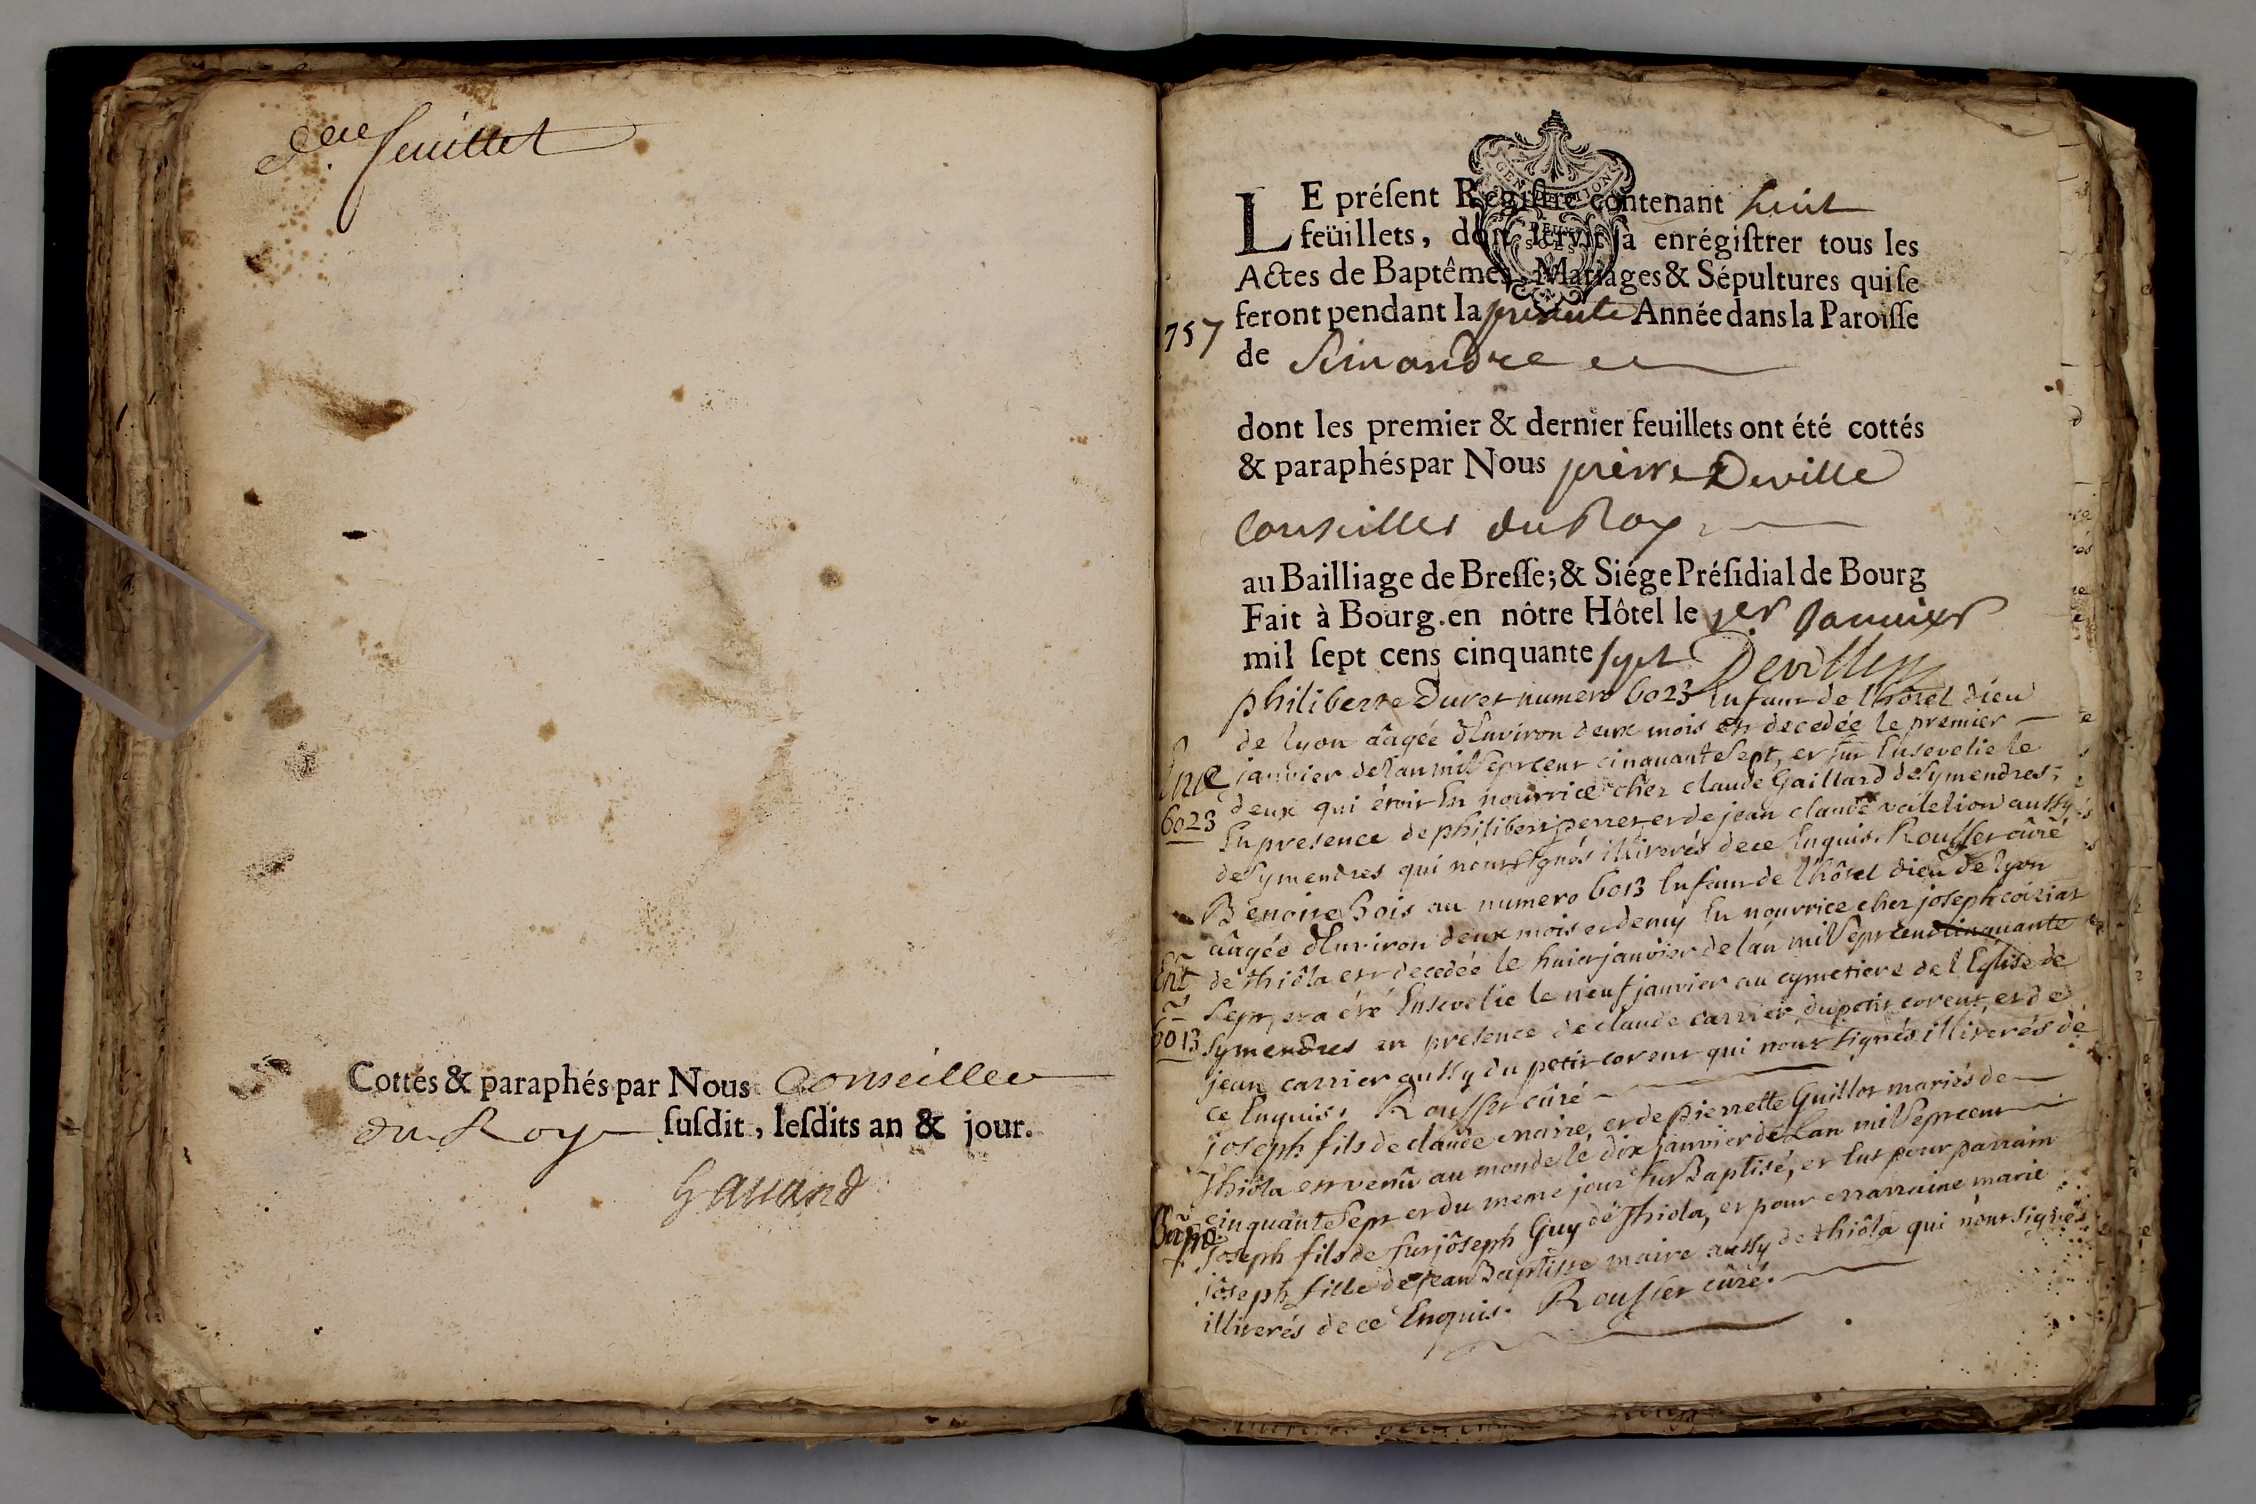 feuillet
Cottés & paraphés par Nous Conseiller
du Roy susdit, lesdits an & jour.
LE présent Registre contenant huit
feüillets, doit servir à enrégistrer tous les
Actes de Baptêmes, Mariages & Sépultures qui se
feront pendant la presente Année dans la Paroisse
757
de Simandre
dont les premier & dernier feuillets ont été cottés
& paraphés par Nous pierre Deville
Conseiller du Roy
au Bailliage de Bresse; & Siége Présidial de Bourg
Fait à Bourg. en nôtre Hôtel le 1er Janvier
mil sept cens cinquante sept Deville
philiberte Duret numero 6023 Enfant de l'hôtel dieu
de lyon âagée d'Environ deux mois est decedée le premier
janvier de l'an mil sept cent cinquante Sept, et fut Ensevelie le
deux qui étoit En nourrice chez claude Gaillard de Symendres;
6023
En presence de philibert perret et de jean claude aussy
de Symendres qui n'ont signés illiterés de ce Enquis. Rousset cûré
Benoite bois au numero 6013 Enfant de l'hôtel dieu de lyon
âagée d'Environ deux mois et demy En nourrice chez joseph coiriat
Ent
de thiôla est decedée le huit janvier de l'an mil Sept cent cinquante
Sept, et a été Ensevelie le neuf janvier au cymetiere de l'Eglise de
6013
Symendres en presence de claude carrier du petit corent et de
jean carrier aussy du petit corent qui n'ont signés illiterés de
ce Enquis. Rousset cûré
joseph fils de claude maire, et de pierrette Guillot mariés de
Thiôla est venû au monde le dix janvier de l'an mil Sept cent
cinquante Sept et du meme jour fut Baptisé, et Eut pour parrain
Bap
joseph fils de fut jôseph Guy de Thiola, et pour marraine marie
jôseph fille de jean Baptiste maire aussy de thiôla qui n'ont signés
illiterés de ce Enquis. Rousset cûré.